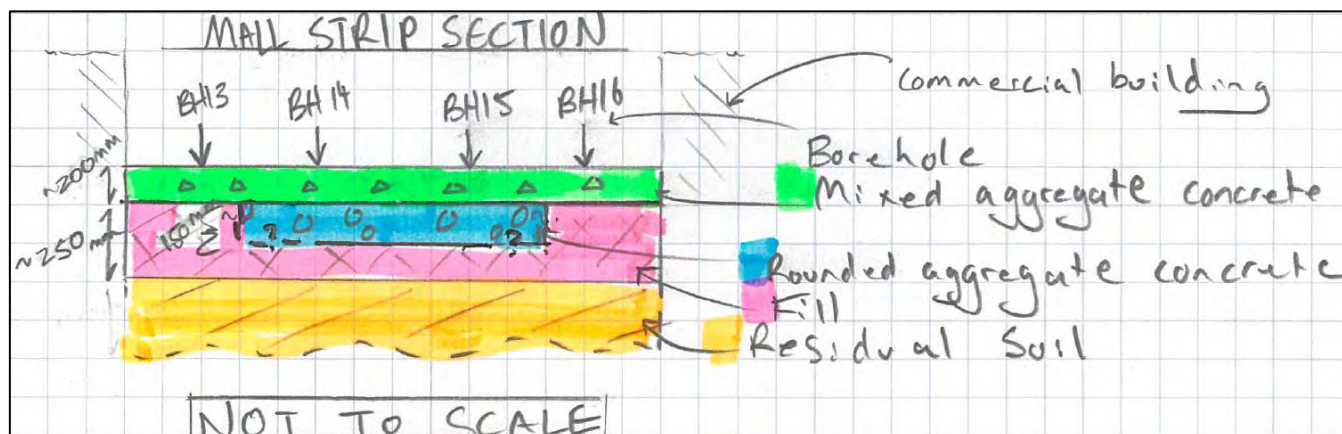 MALL STRIP SECTION
commercial building
BH13 BH14 BH15 BH16
Borehole
~200mm
Mixed aggregate concrete
150mm
~250mm
? ?
Rounded aggregate concrete
Fill
Residual Soil
NOT TO SCALE